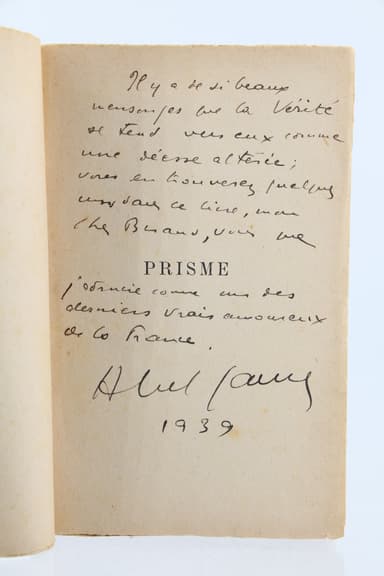 Il y a de si beaux
mensonges que la Vérité
se tend vers eux comme
une déesse altérée;
vous en trouverez quelques
uns dans ce livre, mon
cher Buraud, vous que
PRISME
j'admire comme un des
derniers vrais amoureux
de la France.
Abel Gance
1939